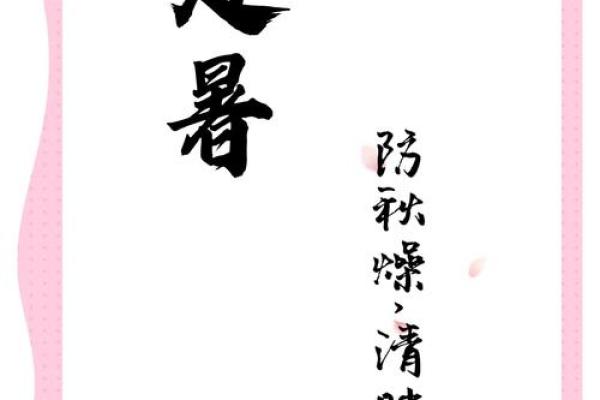 暑
防秋燥，清